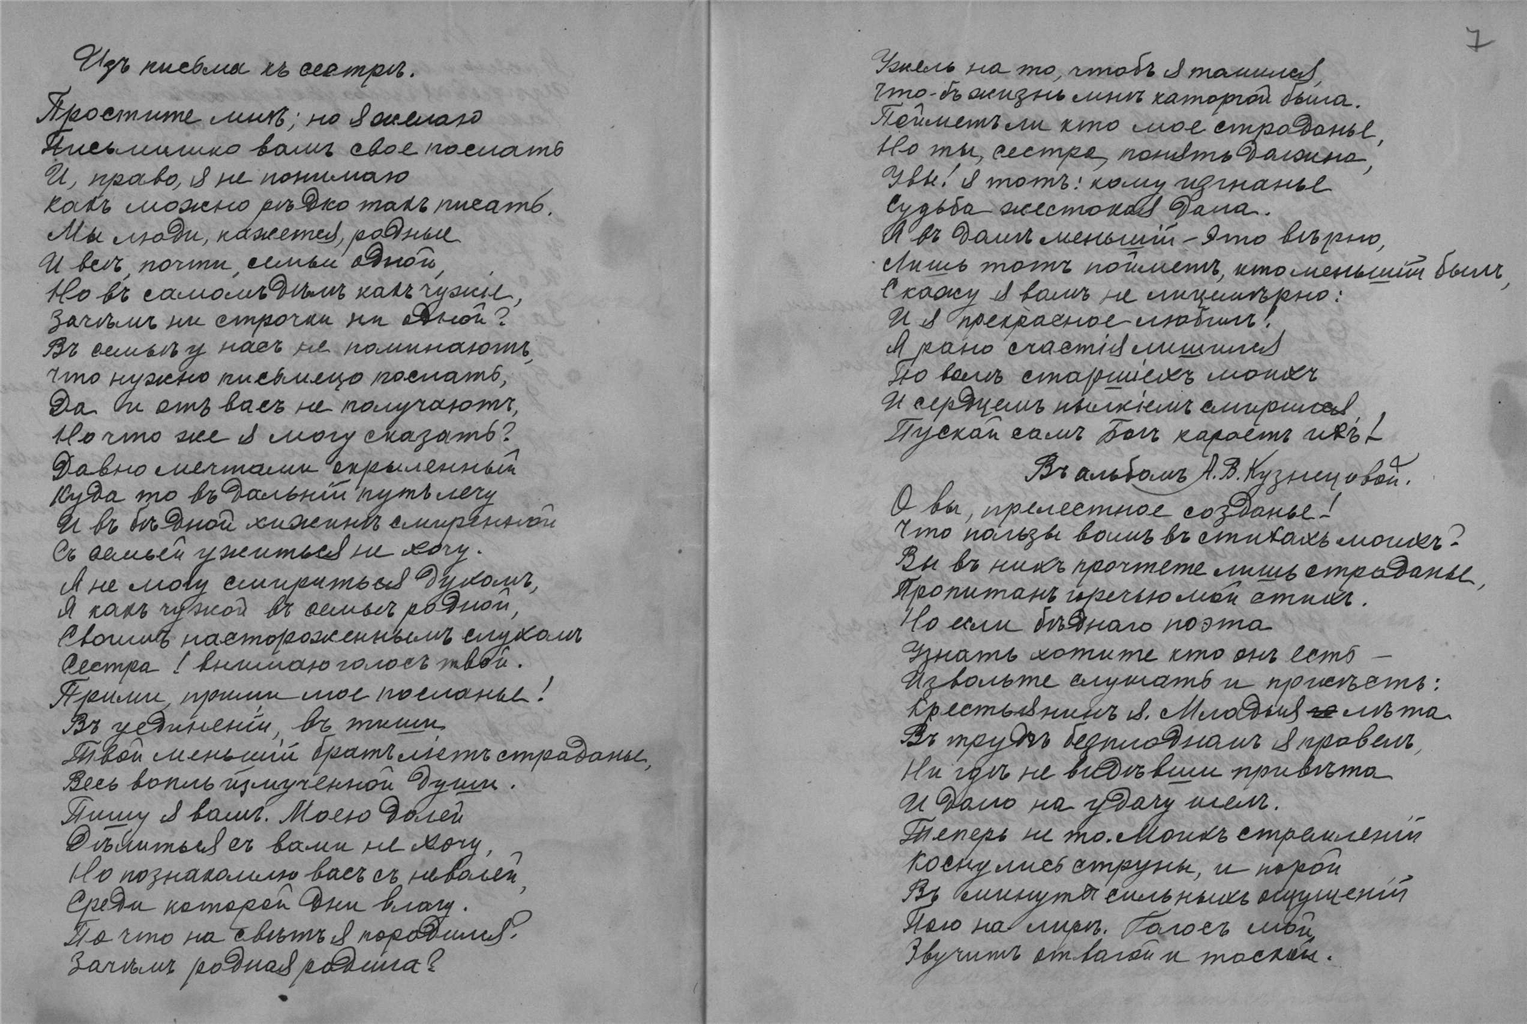 Изъ письма къ сестрѣ.
Простите мнѣ; но я желаю
Письмишко вамъ свое послать
И, право, я не понимаю
какъ можно рѣдко такъ писать.
Мы люди, кажется, родные
И всѣ, почти, семьи одной,
Но въ самомъ дѣлѣ какъ чужіе,
Зачѣмъ ни строчки ни одной?
Въ семьѣ у насъ не поминаютъ,
что нужно письмецо послать,
Да и отъ васъ не получаютъ,
Но что же я могу сказать?
Давно мечтами окрыленный
Куда то въ дальній путь лечу
И въ бѣдной хижинѣ смиренной
Съ семьей ужиться я не хочу.
Я не могу смириться духомъ,
Я какъ чужой въ семьѣ родной,
Своимъ настороженнымъ слухомъ
Сестра! внимаю голосъ твой.
Прими, прими мое посланье!
Въ уединеніи, въ тиши
Твой меньшій братъ льетъ страданье,
Весь вопль измученной души.
Пишу я вамъ. Моею долей
Дѣлиться съ вами не хочу,
Но познакомлю васъ съ неволей,
Среди которой дни влачу.
По что на свѣтъ я породился?
Зачѣмъ родная родила?
7
Ужель на то, чтобъ я томился,
Что-бъ жизнь мнѣ каторгой была.
Пойметъ ли кто мое страданье,
Но ты, сестра, понять должна,
Увы! я тотъ: кому изгнанье
Судьба жестокая дала.
Я въ домѣ меньшій – это вѣрно,
Лишь тотъ пойметъ, кто меньшій былъ,
Скажу я вамъ не лицемѣрно:
И я прекрасное любилъ!
Я рано счастія лишился
По волѣ старшіехъ моихъ
И сердцемъ пылкіемъ смирился,
Пускай самъ Богъ караетъ ихъ!
Въ альбомъ А.В. Кузнецовой.
О вы, прелестное созданье!
Что пользы вамъ въ стихахъ моихъ?
Вы въ нихъ прочтете лишь страданье,
Пропитанъ горечью мой стихъ.
Но если бѣднаго поэта
Узнать хотите кто онъ есть –
Извольте слушать и присѣсть:
Крестьянинъ я. Младыя лѣта
Въ трудѣ безплодномъ я провелъ,
Ни гдѣ не видѣвши привѣта
И дало на удачу шелъ.
Теперь не то. Моихъ стремленій
Коснулись струны, и порой
Въ минуты сильныхъ ощущеній
Пою на лирѣ. Голосъ мой
Звучитъ отвагой и тоской.